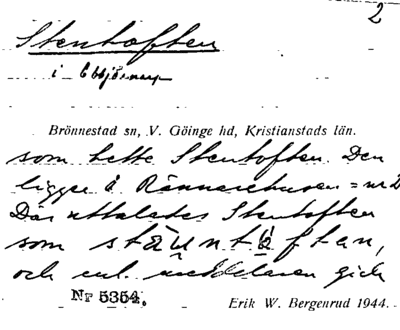 2
Stentoften
i Ebbjörnarp
Brönnestad sn, V. Göinge hd, Kristianstads län.
som hette Stentoften. Den
ligger å Rännarehusen = nr 2
Där uttalades Stentoften
som stäuntåftan,
och enl. meddelaren gick
Nr 5354.
Erik W. Bergenrud 1944.